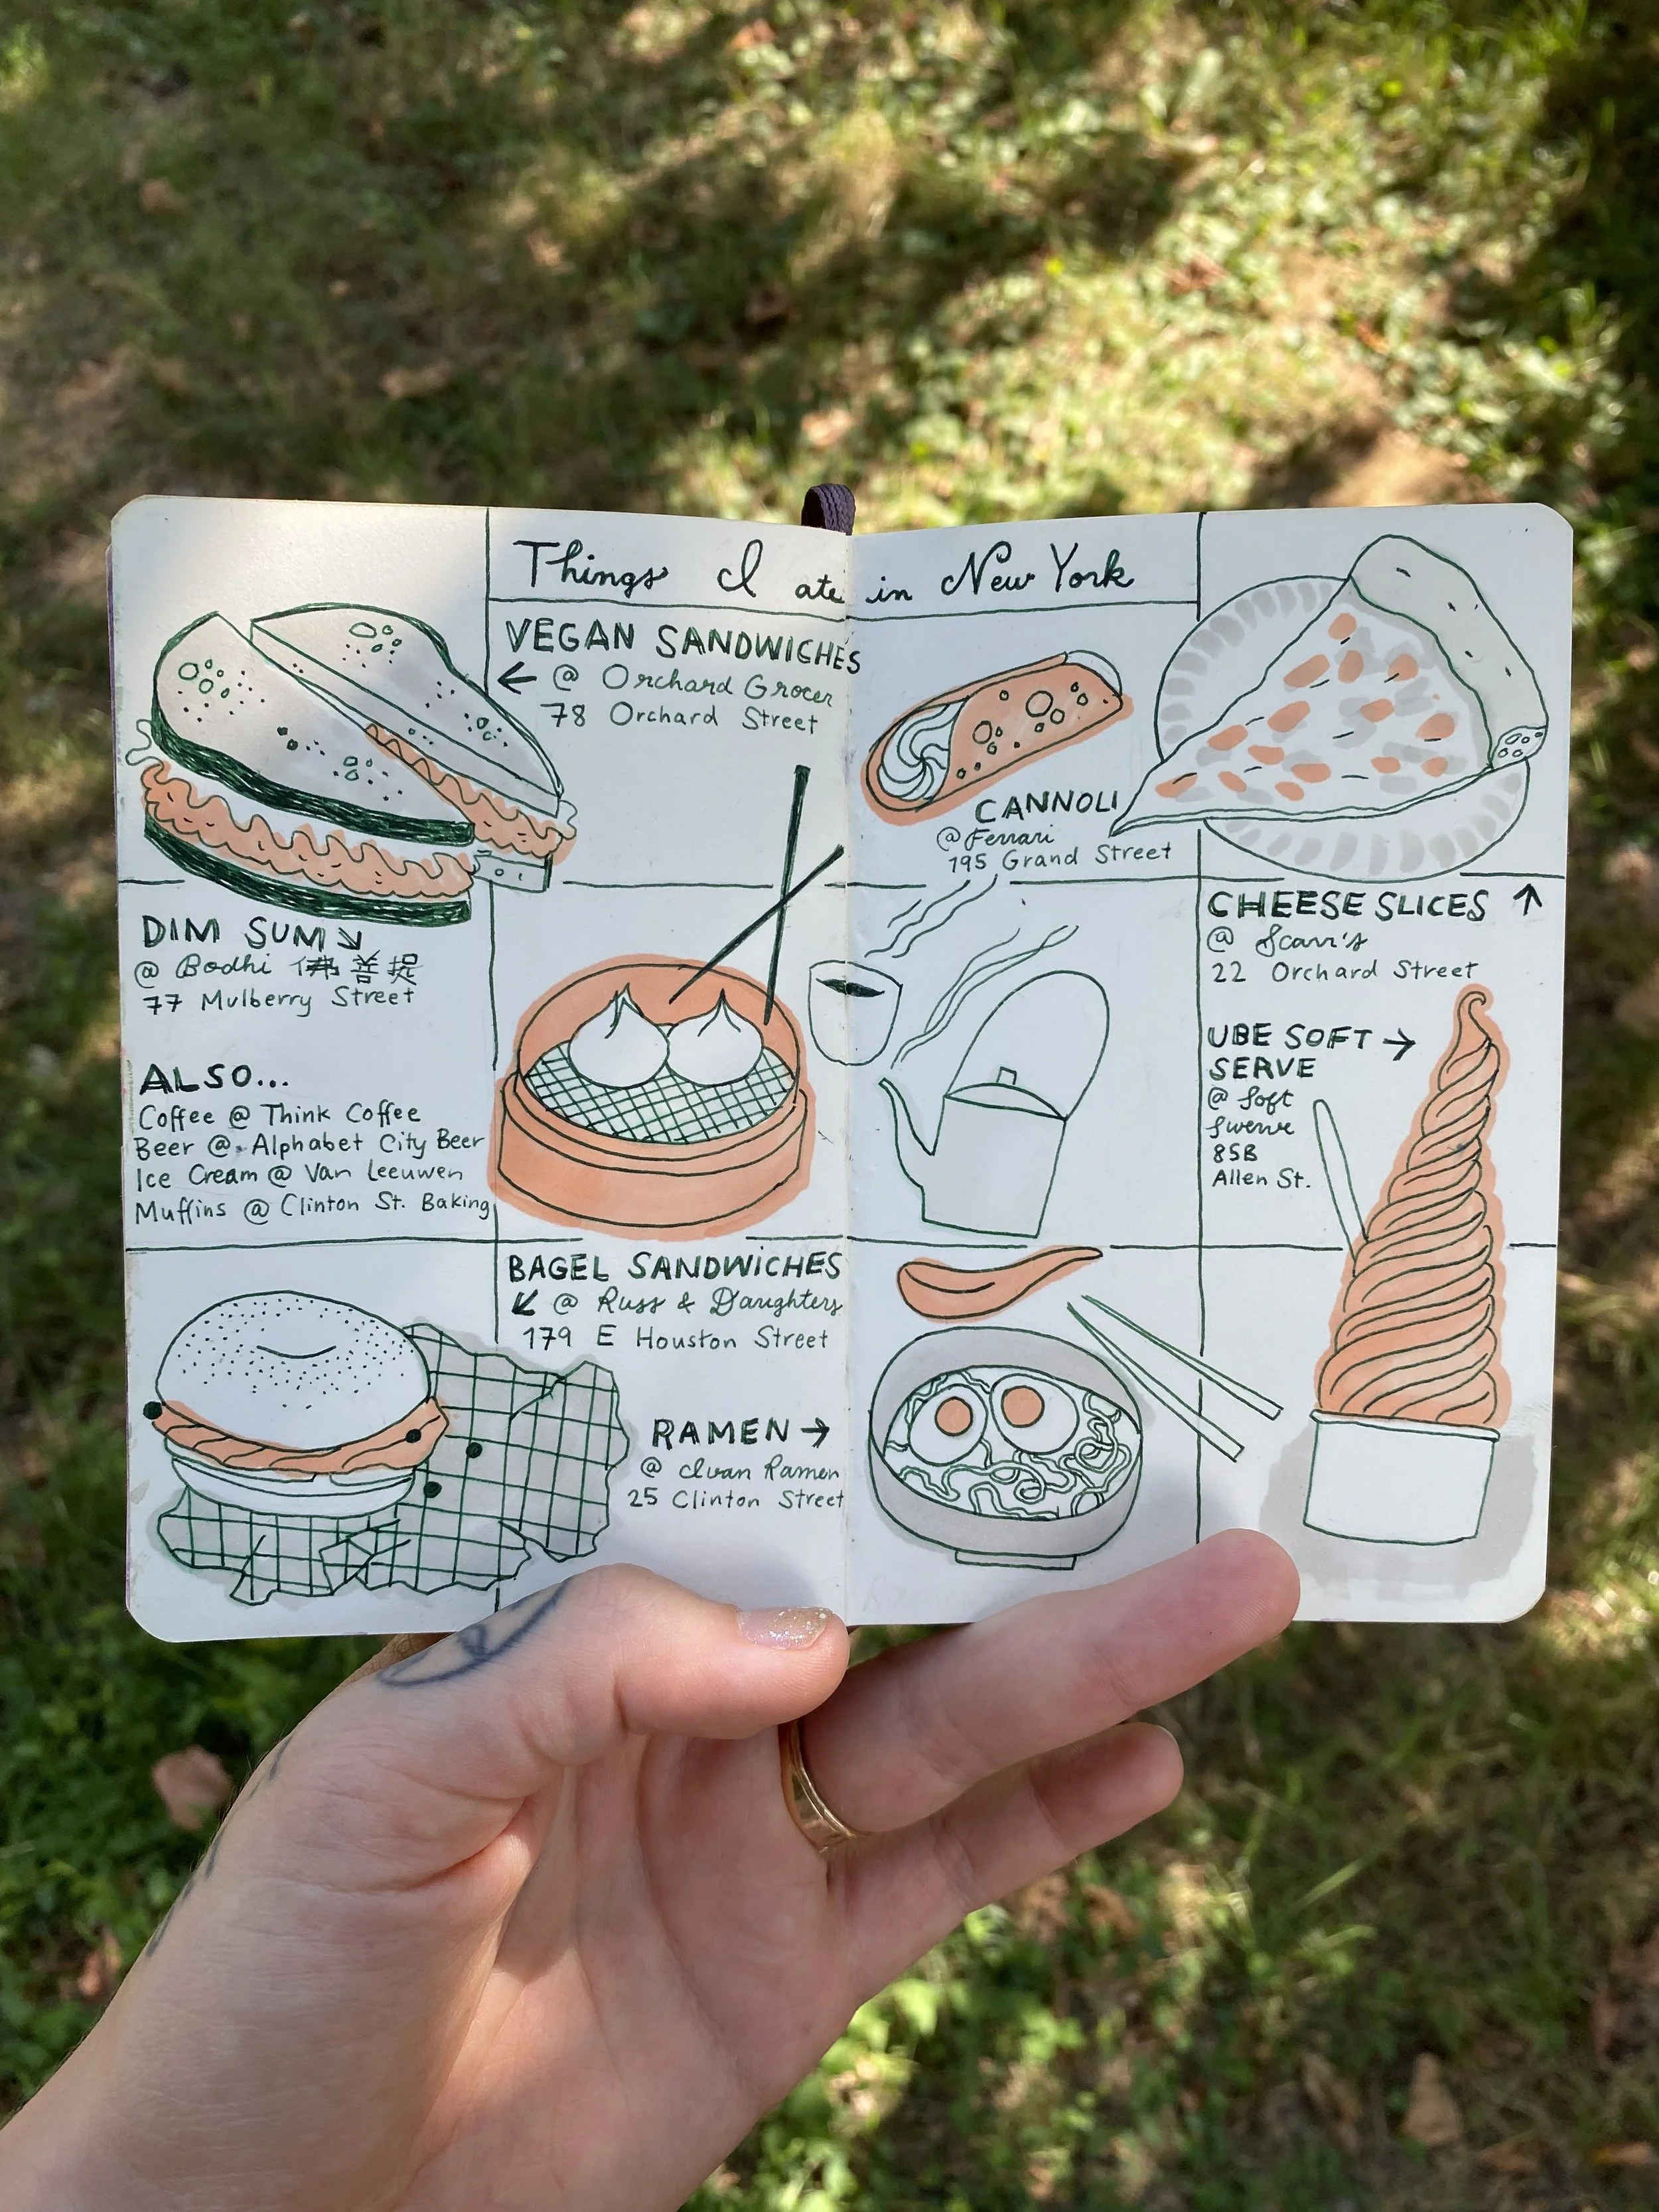 Things I ate in New York
VEGAN SANDWICHES
← @ Orchard Grocer
78 Orchard Street
CANNOLI
@ Ferrari
195 Grand Street
DIM SUM ↘
@ Bodhi 佛菩提
77 Mulberry Street
ALSO...
Coffee @ Think Coffee
Beer @ Alphabet City Beer
Ice Cream @ Van Leeuwen
Muffins @ Clinton St. Baking
CHEESE SLICES ↑
@ Scarr's
22 Orchard Street
UBE SOFT →
SERVE
@ Soft
Swerve
85B
Allen St.
BAGEL SANDWICHES
↙ @ Russ & Daughters
179 E Houston Street
RAMEN →
@ Ivan Ramen
25 Clinton Street